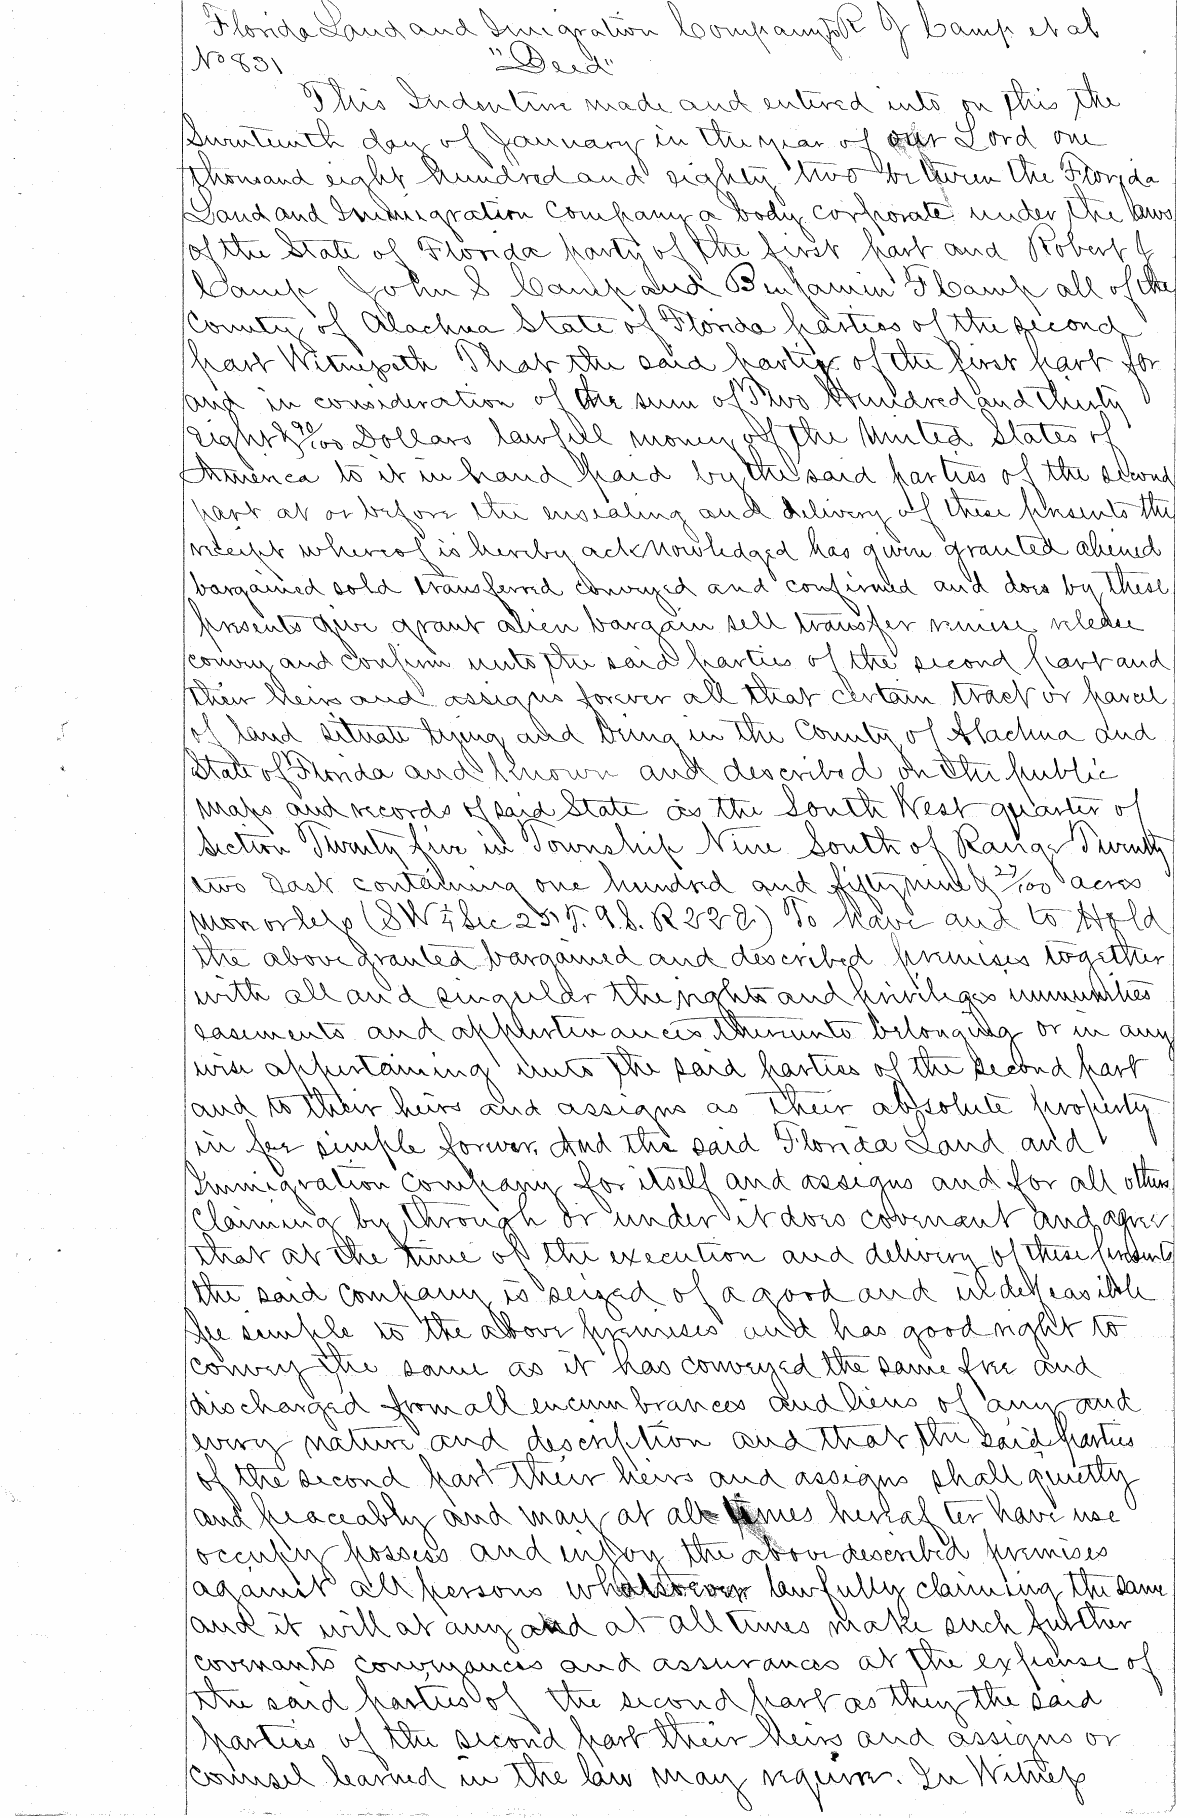 Florida Land and Imigration Company to R J Camp et al
No 831 "Deed"
This Indenture made and entered into on this the
Seventeenth day of January in the year of our Lord one
thousand eight hundred and eighty two between the Florida
Land and Immigration Company a body corporate under the laws
of the State of Florida party of the first part and Robert J
Camp John S Camp and Benjamin F Camp all of the
County of Alachua State of Florida parties of the second
part Witnesseth That the said party of the first part for
and in consideration of the sum of Two Hundred and thirty
Eight & 90/100 Dollars lawfull money of the United States of
America to it in hand paid by the said parties of the second
part at or before the ensealing and delivery of these presents the
receipt whereof is hereby acknowledged has given granted aliened
bargained sold transferred conveyed and confirmed and does by these
presents give grant alien bargain sell transfer remise release
convey and confirm unto the said parties of the second part and
their heirs and assigns forever all that certain tract or parcel
of land situate lying and being in the County of Alachua and
State of Florida and known and described on the public
maps and records of said State as the South West quarter of
Section Twenty five in Township Nine South of Range Twenty
two East containing one hundred and fifty nine & 27/100 acres
more or less (SW¼ Sec 25 T. 9 S. R 22 E) To have and to Hold
the above granted bargained and described premises together
with all and singular the rights and privileges immunities
easements and appurtenances thereunto belonging or in any
wise appertaining unto the said parties of the second part
and to their heirs and assigns as their absolute property
in fee simple forever. And the said Florida Land and
Immigration Company for itself and assigns and for all others
claiming by through or under it does covenant and agree
that at the time of the execution and delivery of these presents
the said company is seized of a good and indefeasible
fee simple to the above premises and has good right to
convey the same as it has conveyed the same free and
discharged from all encumbrances and liens of any and
every nature and description and that the said parties
of the second part their heirs and assigns shall quietly
and peaceably and may at all times hereafter have use
occupy possess and enjoy the above described premises
against all persons whatsoever lawfully claiming the same
and it will at any and at all times make such further
covenants conveyances and assurances at the expense of
the said parties of the second part as they the said
parties of the second part their heirs and assigns or
counsel learned in the law may require. In Witness